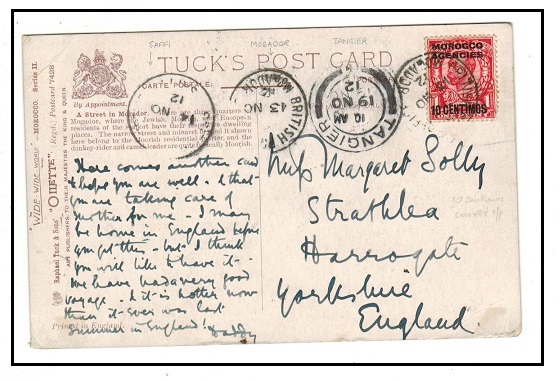 SAFFI
MOGADOR
TANGIER
TUCK'S POST CARD
CARTE POSTALE
By Appointment.
A Street in Mogador.
residents of the port have their respective dwelling
places. The narrow street and minaret behind it shown
here belong to the Jewish residential quarter, and the
donkey-rider and casket leader are quite Moorish.
"WIDE-WIDE-WORLD" —MOROCCO. Series II.
Raphael Tuck & Sons' "OILETTE" Regd. Postcard 7428
ART PUBLISHERS TO THEIR MAJESTIES THE KING & QUEEN
Printed in England.
14 NO 12
BRITISH
MOGADOR
13 NO
TANGIER
10. AM
19 NO
12
MOROCCO
AGENCIES
10 CENTIMOS
Here comes another card
& hope you are well - & that
you are taking care of
Mother for me - I may
be home in England before
you get this - but I think
you will like to have it -
We have had a very good
voyage - & it is hotter now
than it ever was last
Summer in England! Daddy
Miss Margaret Solly
Strathlea
Harrogate
Yorkshire
England.
10 centimos